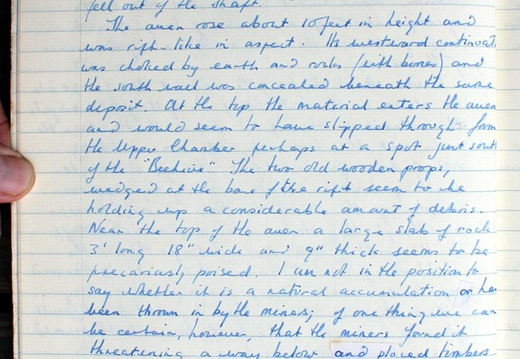 fell out of the shaft.
The aven rose about 10 feet in height and
was rift-like in aspect. Its westward continuat
was choked by earth and rocks (with bones) and
the south wall was concealed beneath the same
deposit. At the top the material enters the aven
and would seem to have slipped through from
the Upper Chamber perhaps at a spot just south
of the "Beehive" The two old wooden props,
wedged at the base of the rift seem to be
holding up a considerable amount of debris.
Near the top of the aven a large slab of rock
3' long 18" wide and 9" thick seems to be
precariously poised. I am not in the position to
say whether it is a natural accumulation or has
been thrown in by the miners; of one thing we can
be certain, however, that the miners found it
threatening a way below and placed timbers